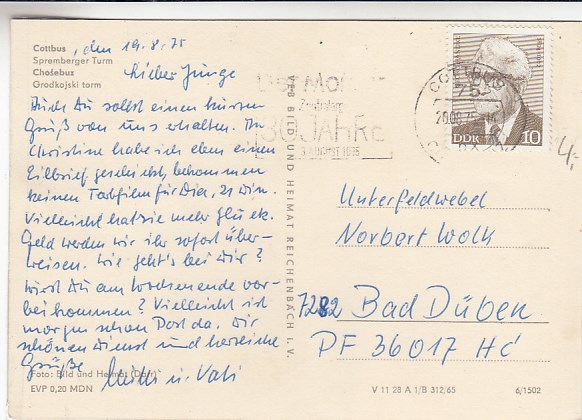 Cottbus, den 19.8.75
Spremberger Turm
Chośebuz
Grodkojski torm
Lieber Junge
Auch Du sollst einen kurzen
Gruß von uns erhalten. An
Christine habe ich eben einen
Eilbrief geschickt, bekommen
keinen Farbfilm für Dia, 21 Din.
Vielleicht hat sie mehr Glück.
Geld werden wir ihr sofort über-
weisen. Wie geht's bei Dir?
Wirst Du am Wochenende vor-
bei kommen? Vielleicht ist
morgen schon Post da. Dir
schönen Dienst und herzliche
Grüße
Mutti u. Vati
Foto: Bild und Heimat
EVP 0,20 MDN
VEB BILD UND HEIMAT REICHENBACH I. V.
30 JAHRE
COTTBUS
75
20.08.75
DDR 10
4,-
Unterfeldwebel
Norbert Wolk
7282 Bad Düben
PF 36017 HC
V 11 28 A 1/B 312/65
6/1502